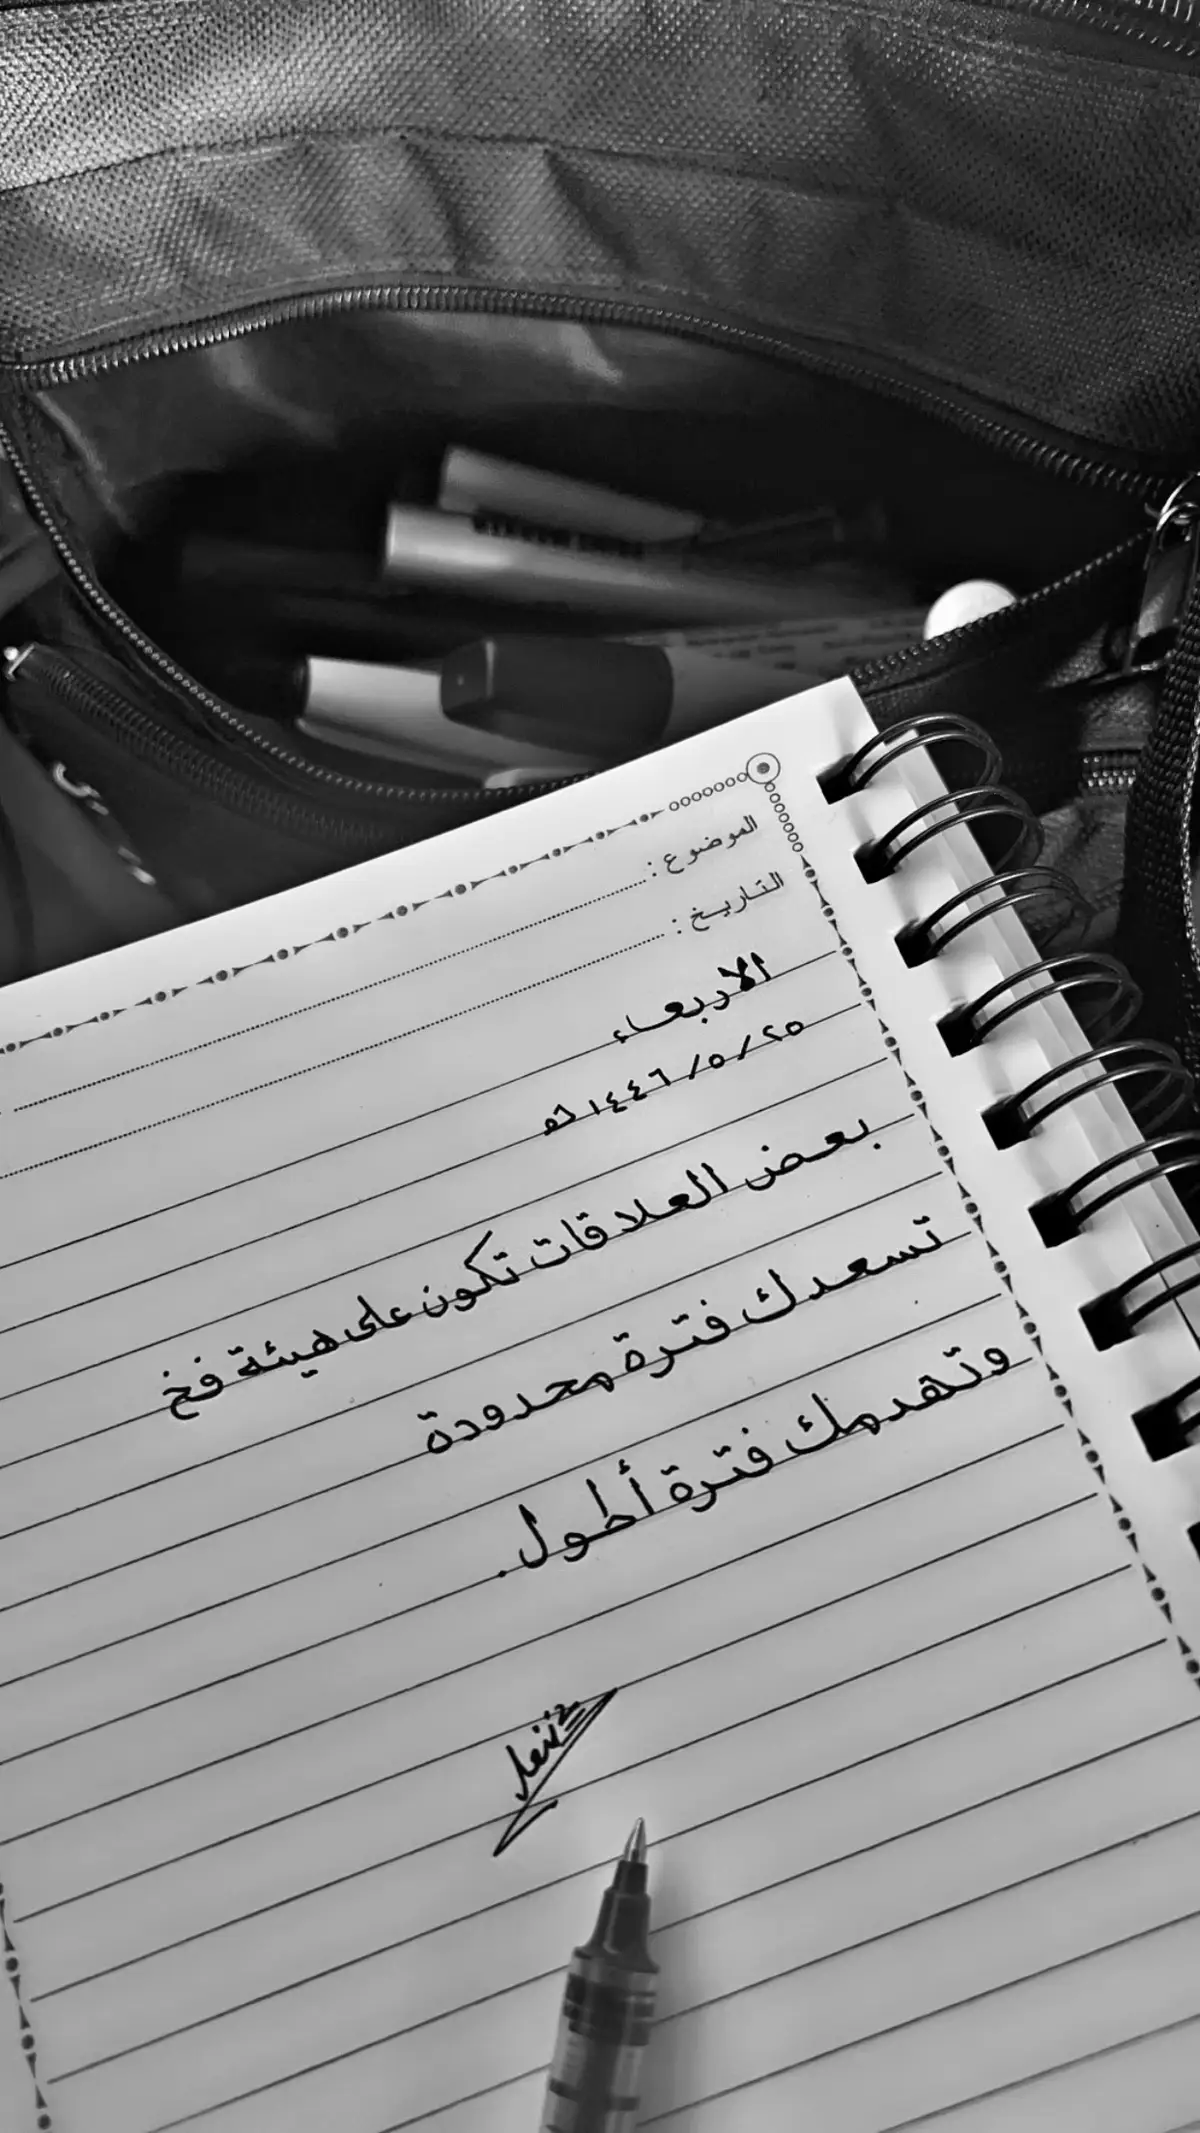 الموضوع :
التاريخ :
الاربعاء
٢٥ / ٥ / ١٤٤٦ هـ
بعض العلاقات تكون على هيئة فخ
تسعدك فترة محدودة
وتهدمك فترة أطول .